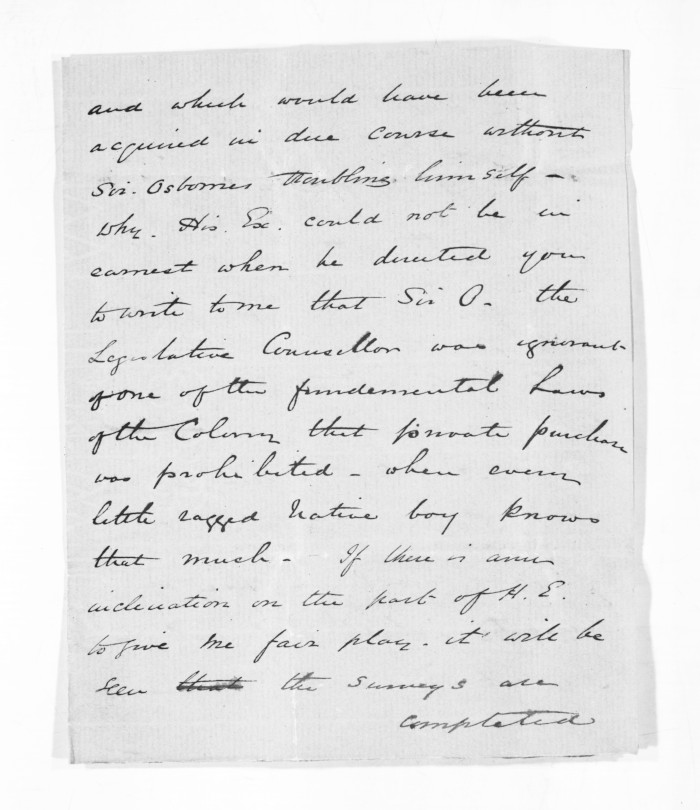 and which would have been
acquired in due course without
Sir. Osbornes troubling himself -
Why. His. Ex. could not be in
earnest when he directed you
to write to me that Sir O. the
Legislative Counsellor was ignorant
of one of the fundemental Laws
of the Colony that private purchase
was prohibited - when every
little ragged Native boy knows
that much - If there is any
inclination on the part of H. E.
to give me fair play. it will be
seen that the surveys are
completed